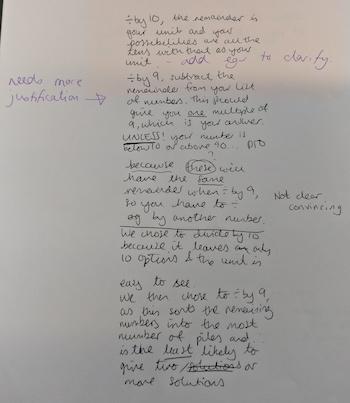 ÷ by 10, the remainder is
your unit and your
possibilities are all the
tens with that as your
unit. - add egs to clarify.
÷ by 9, subtract the
needs more
justification →
remainder from your list
of numbers. This should
give you one multiple of
9, which is your answer.
UNLESS! your number is
below 10 or above 90... PTO
?
because these will
have the same
remainder when ÷ by 9,
so you have to ÷
eg by another number.
Not clear
convincing
We chose to divide by 10
because it leaves only
10 options & the unit is
easy to see.
We then chose to ÷ by 9,
as this sorts the remaining
numbers into the most
number of piles and
is the least likely to
give two /solutions or
more solutions